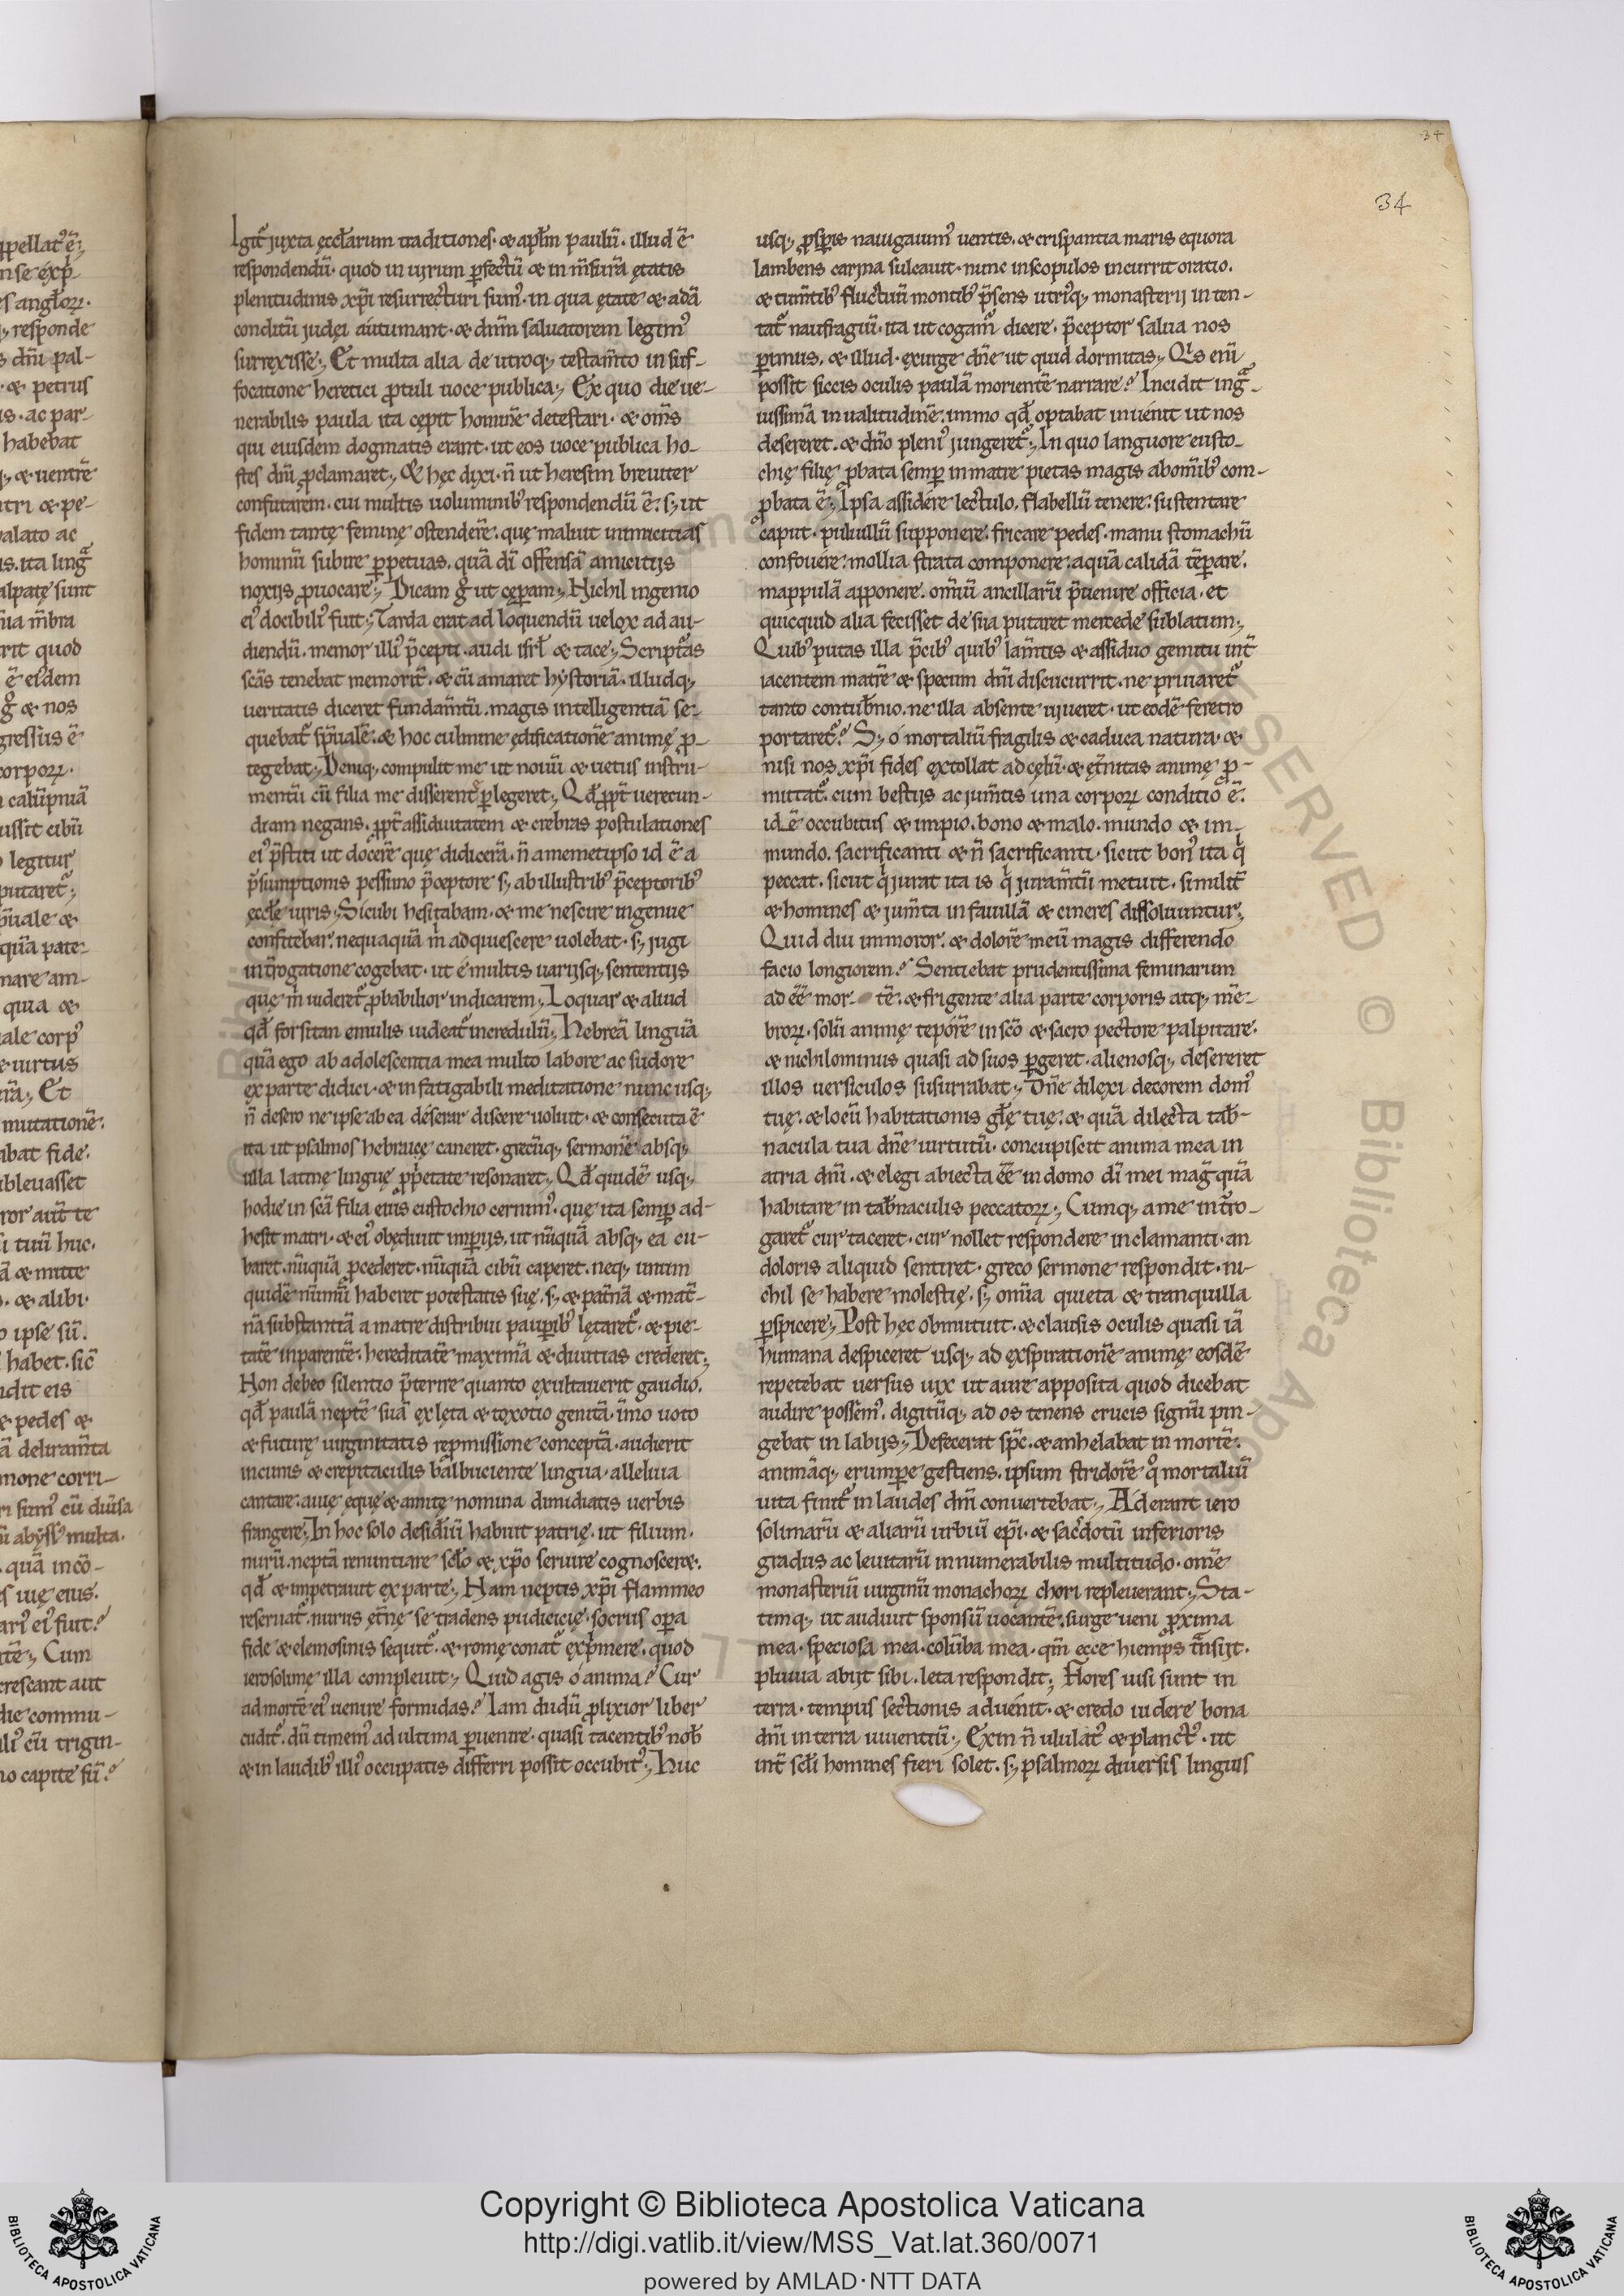 34
34
Igit᷑ juxta ęcctarum traditiones. & aptm paulū. illud ē
respondendū. quod in uirum ꝑfectū & in m̄surā ętatis
plenitudinis xp̄i resurrecturi sum᷒. in qua ętate & adā
conditū judei autumant. & dnm̄ saluatorem legim᷒
surrexisse; Et multa alia de utroq; testam̄to in suf-
focatione heretici ꝓtuli uoce publica; Ex quo die ue-
nerabilis paula ita cępit homine detestari. & om̄s
qui eiusdem dogmatis erant. ut eos uoce publica ho-
stes dn̄i ꝓclamaret; & hęc dixi. n̄ ut heresim breuiter
confutarem. cui multis uoluminib᷒ respondendū ē. s; ut
fidem tantę feminę ostenderē. quę maluit inimicitias
hominū subire ꝑpetuas. quā dī offensā amicitijs
noxijs ꝓuocare; Dicam gͦ ut cęperam; Nichil ingenio
ei᷒ docibili᷒ fuit; Tarda erat ad loquendū uelox ad au-
diendū. memor illi᷒ p̄cepti. audi isrł & tace; Scripturas
scās tenebat memorit᷑. & cū amaret hystoriā. illudq;
ueritatis diceret fundam̄tū. magis intelligentiā se-
quebat᷑ sp̄ualē. & hoc culmine ędificationē animę ꝓ-
tegebat; Deniq; compulit me ut nouū & uetus instru-
mentū cū filia me disserente ꝑlegeret; Qđ ꝓpt᷑ uerecun-
diam negans. ꝓpt᷑ assiduitatem & crebras postulationes
ei᷒ p̄stiti ut docerē quę didicerā. n̄ a memetipso id ē a
p̄sumptionis pessimo p̄ceptore s; ab illustrib᷒ p̄ceptorib᷒
ęcclę uiris; Sicubi hesitabam. & me nescire ingenue
confitebar. nequaquā m̄ adquiescere uolebat. s; jugi
int᷑rogatione cogebat. ut é multis uarijsq; sententijs
quę m̄ uideret᷑ ꝓbabilior indicarem; Loquar & aliud
qđ forsitan emulis uideat᷑ incredulū; Hebreā linguā
quā ego ab adolescentia mea multo labore ac sudore
ex parte didici. & infatigabili meditatione nunc usq;
n̄ desero ne ipse ab ea deserar discere uoluit. & consecuta ē
ita ut psalmos hebraicę caneret. grecūq; sermonē absq;
ulla latinę linguę ꝓprietate resonaret; Qđ quidē usq;
hodie in scā filia eius eustochio cernim᷒. quę ita semꝑ ad-
hesit matri. & ei᷒ obędiuit imꝑijs. ut nūquā absq; ea cu-
baret. nūquā ꝓcederet. nūquā cibū caperet. neq; unum
quidē nūmū haberet potestatis suę. s; & pat᷑nā & mat᷑-
nā substantiā a matre distribui pauꝑib᷒ lętaret᷑. & pie-
tatē in parentē. hereditatē maximā & diuitias crederet;
Non debeo silentio p̄terire quanto exultauerit gaudio.
qđ paulā neptē suā ex lęta & toxotio genitā. imo uoto
& futurę uirginitatis repmissione conceptā. audierit
in cunis & crepitaculis balbuciente lingua. alleluia
cantare. auię eque & amitę nomina dimidiatis uerbis
frangere; In hoc solo desideriū habuit patrię. ut filium.
nurū. neptā renuntiare sćło & xp̄o seruire cognosceret.
qđ & impetrauit ex parte; Nam neptis xp̄i flammeo
reseruat᷑. nurus ęt᷑nę se tradens pudicicię. socrus oꝑa
fide & elemosinis sequit᷑. & romę conat᷑ exp̄mere. quod
ierosolimę illa compleuit; Quid agis ó anima? Cur
ad mortē ei᷒ uenire formidas? Iam dudū ꝓlixior liber
cudit᷑. dū timem᷒ ad ultima ꝑuenire. quasi tacentib᷒ nob̄
& in laudib᷒ illi᷒ occupatis differri possit occubit᷒; Huc
usq; ꝓsꝑis nauigauim᷒ uentis. & crispantia maris equora
lambens carina sulcauit. nunc in scopulos incurrit oratio.
& tum̄tib᷒ fluctuū montib᷒ p̄sens utri᷒q; monasterij in ten-
tat᷑ naufragiū. ita ut cogam᷑ dicere. p̄ceptor salua nos
ꝑimus. & illud. exurge dn̄e ut quid dormitas; Qis enī
possit siccis oculis paulā morientē narrare? Incidit in gra-
uissimā inualitudinē. immo qđ optabat inuénit ut nos
desereret. & dn̄o pleni᷒ jungeret᷑; In quo languore eusto-
chię filię ꝓbata semꝑ in matre pietas magis ab om̄ib᷒ com-
ꝓbata ē; Ipsa assidére lectulo. flabellū tenere. sustentare
caput. puluillū supponere. fricare pedes. manu stomachū
confouére. mollia strata componere. aquā calidā tēꝑare.
mappulā apponere. om̄iū ancillarū p̄uenire officia. et
quicquid alia fecisset de sua putaret mercede sublatum;
Quib᷒ putas illa p̄cib᷒ quib᷒ lam̄tis & assiduo gemitu int᷑
iacentem matrē & specum dn̄i discucurrit. ne priuaret᷑
tanto contub̄nio. ne illa absente uiueret. ut eodē feretro
portaret᷑? S; ó mortaliū fragilis & caduca natura. &
nisi nos xp̄i fides extollat ad cęlū. & ęt᷑nitas animę ꝓ-
mittat᷑. cum bestijs ac jum̄tis una corporꝝ conditio ē.
id ē occubitus & impio. bono & malo. mundo & im-
mundo. sacrificanti & n̄ sacrificanti. sicut bon᷒ ita q̇
peccat. sicut q̇ jurat ita is q̇ juram̄tū metuit. similit᷑
& homines & jum̄ta in fauillā & cineres dissoluuntur;
Quid diu immoror. & dolorē meū magis differendo
facio longiorem? Sentiebat prudentissima feminarum
adeē mor tē. & frigente alia parte corporis atq; mē-
brorꝝ. solū animę tepórē in scō & sacro pectore palpitare.
& nichilominus quasi ad suos ꝑgeret. alienosq; desereret
illos uersiculos susurrabat; Dn̄e dilexi decorem dom᷒
tuę. & locū habitationis głę tuę. & quā dilecta tab̄-
nacula tua dn̄e uirtutū. concupiscit anima mea in
atria dn̄i. & elegi abiecta eē in domo dī mei mag᷒ quā
habitare in tab̄naculis peccatorꝝ; Cumq; a me int᷑ro-
garet᷑ cur taceret. cur nollet respondere inclamanti. an
doloris aliquid sentiret. greco sermone respondit. ni-
chil se habere molestię. s; om̄ia quieta & tranquilla
ꝑspicere; Post hęc obmutuit. & clausis oculis quasi iā
humana despiceret usq; ad exspirationē animę eosdē
repetebat uersus uix ut aure apposita quod dicebat
audire possem᷒. digitūq; ad os tenens crucis signū pin-
gebat in labijs; Defecerat sp̄c. & anhelabat in mortē.
animāq; erumꝑe gestiens. ipsum stridorē qͦ mortaliū
uita finit᷑ in laudes dn̄i conuertebat; Aderant iero
solimarū & aliarū urbiū ep̄i. & sac᷑dotū inferioris
gradus ac leuitarū innumerabilis multitudo. om̄e
monasteriū uirginū monachorꝝ chori repleuerant; Sta-
timq; ut audiuit sponsū uocantē. surge ueni ꝓxima
mea. speciosa mea. colūba mea. qm̄ ecce hiemps t᷑nsijt.
pluuia abijt sibi. leta respondit; Flores uisi sunt in
terra. tempus sectionis aduénit. & credo uidere bona
dn̄i in terra uiuentiū; Exin n̄ ululat᷒ & planct᷒. ut
int᷑ sćłi homines fieri solet. s; psalmorꝝ diuersis linguis
Copyright © Biblioteca Apostolica Vaticana
http://digi.vatlib.it/view/MSS_Vat.lat.360/0071
powered by AMLAD·NTT DATA
BIBLIOTECA APOSTOLICA VATICANA
BIBLIOTECA APOSTOLICA VATICANA